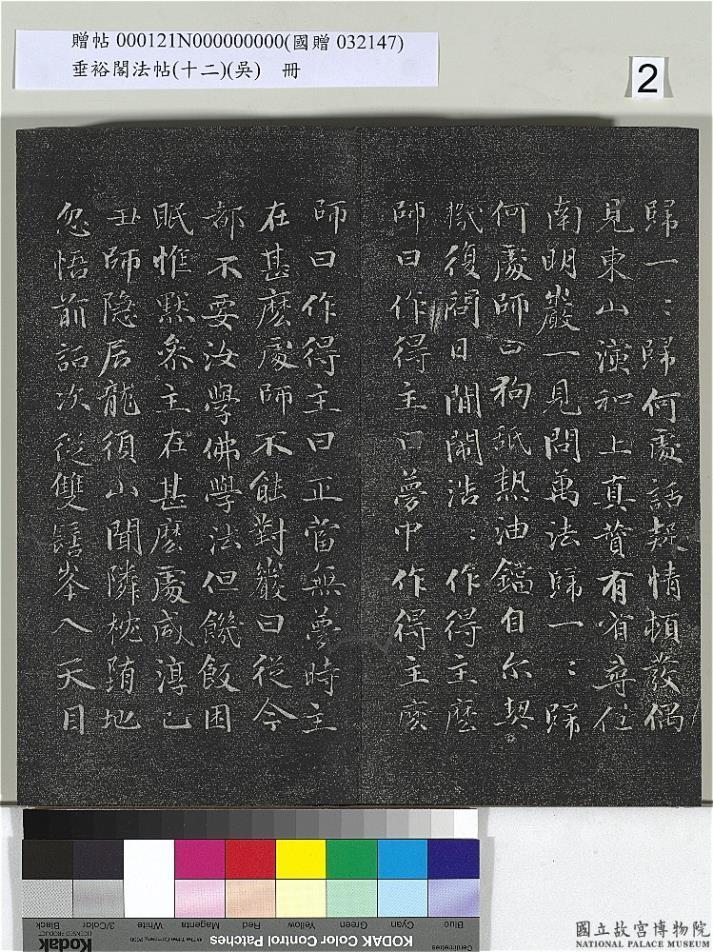 贈帖 000121N000000000(國贈 032147)
垂裕閣法帖(十二)(吳) 冊
2
歸一：歸何處話疑情頓發偶
見東山演和上真贊有省尋住
南明巖一見問萬法歸一：歸
何處師曰狗舐熱油鐺自尔契
機復問日間鬧浩：作得主麽
師曰作得主曰夢中作得主麽
師曰作得主曰正當無夢時主
在甚麽處師不能對巖曰從今
都不要汝學佛學法但饑飯困
眠惟默參主在甚麽處咸淳已
丑師隐居龍須山聞隣枕踣地
忽悟前話次從雙髻峯入天目
Blue
Cyan
Green
Yellow
Red
Magenta
White
3/Color
Black
KODAK Color Control Patches
Kodak
LICENSED PRODUCT
Centimetres
國立故宮博物院
NATIONAL PALACE MUSEUM